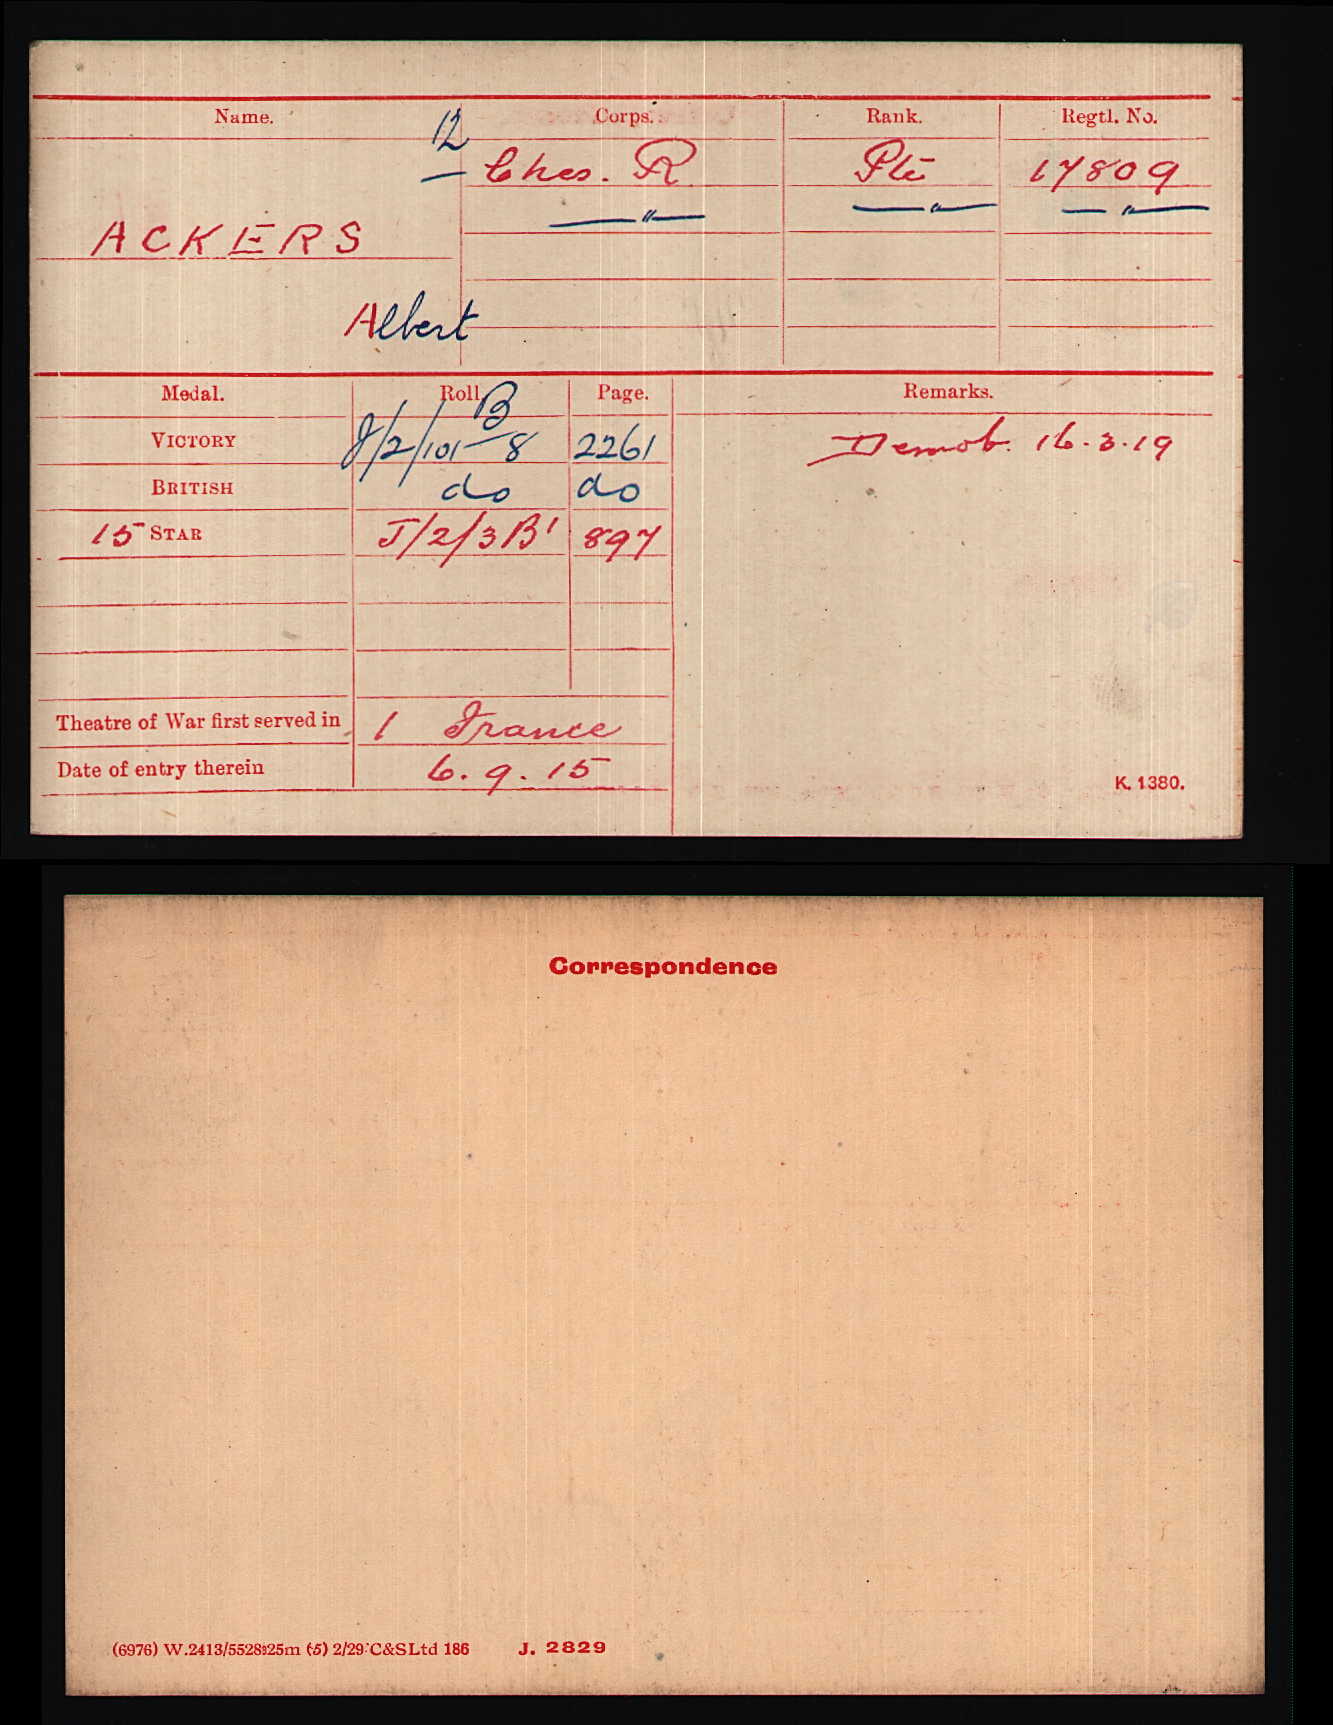 Name. Corps. Rank. Regtl. No.
12 Ches. R Pte 17809
— " — — " — — " —
ACKERS
Albert
Medal. Roll. Page. Remarks.
VICTORY J/2/101 B 8 2261 Demob. 16.3.19
BRITISH do do
15 STAR J/2/3 B' 897
Theatre of War first served in 1 France
Date of entry therein 6.9.15
K. 1380.
Correspondence
(6976) W.2413/5528 25m (5) 2/29 C&S Ltd 186 J. 2829